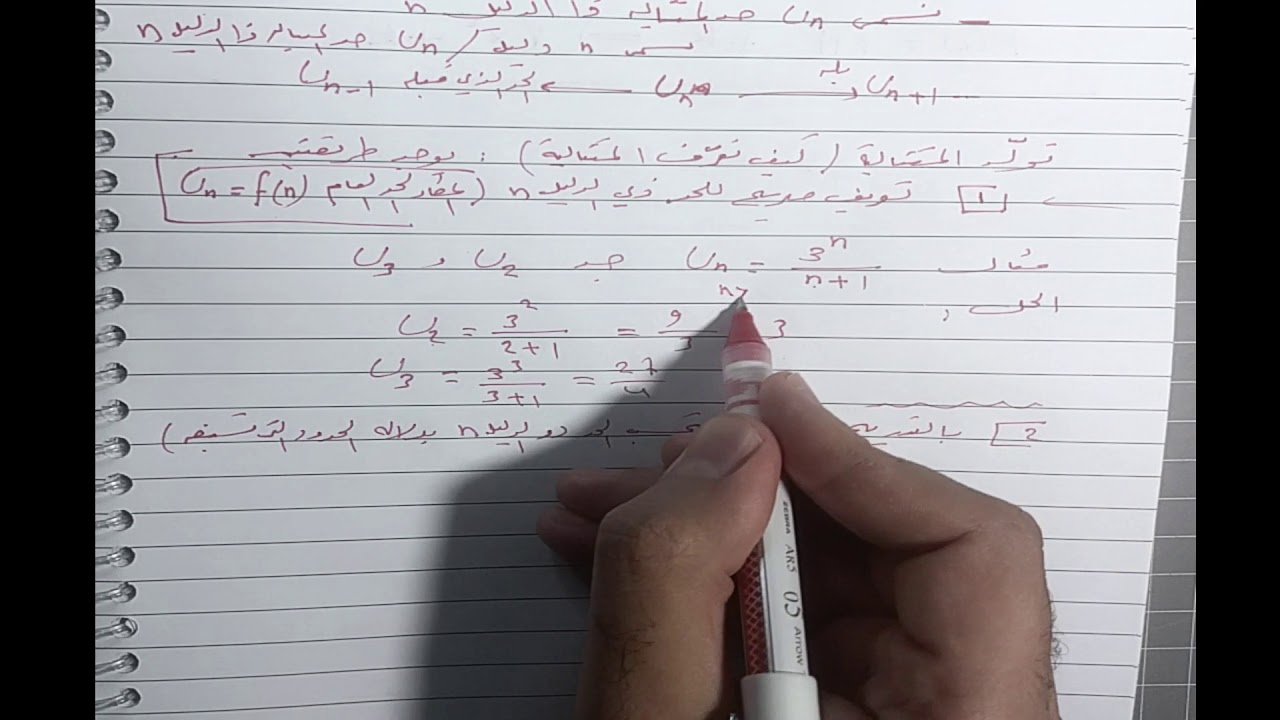 – نسمي Un حد المتتالية ذا الدليل n
نسمي n دليل / Un حد المتتالية ذا الدليل n
Un+1 يليه Un الحد الذي قبله Un-1
تولّد المتتالية (كيف تعرّف المتتالية) : يوجد طريقتين
1 تعريف صريح للحد ذي الدليل n (بمقدار الحد العام Un = f(n)
مثال Un = 3^n / n+1 جد U2 و U3
n>
الحل :
U2 = 3^2 / 2+1 = 9 / 3 3
U3 = 3^3 / 3+1 = 27 / 4
2 بالتدريج الحد ذو الدليل n بدلالة الحدود التي تسبقه)
ZEBRA AK5 0.5 Arrow